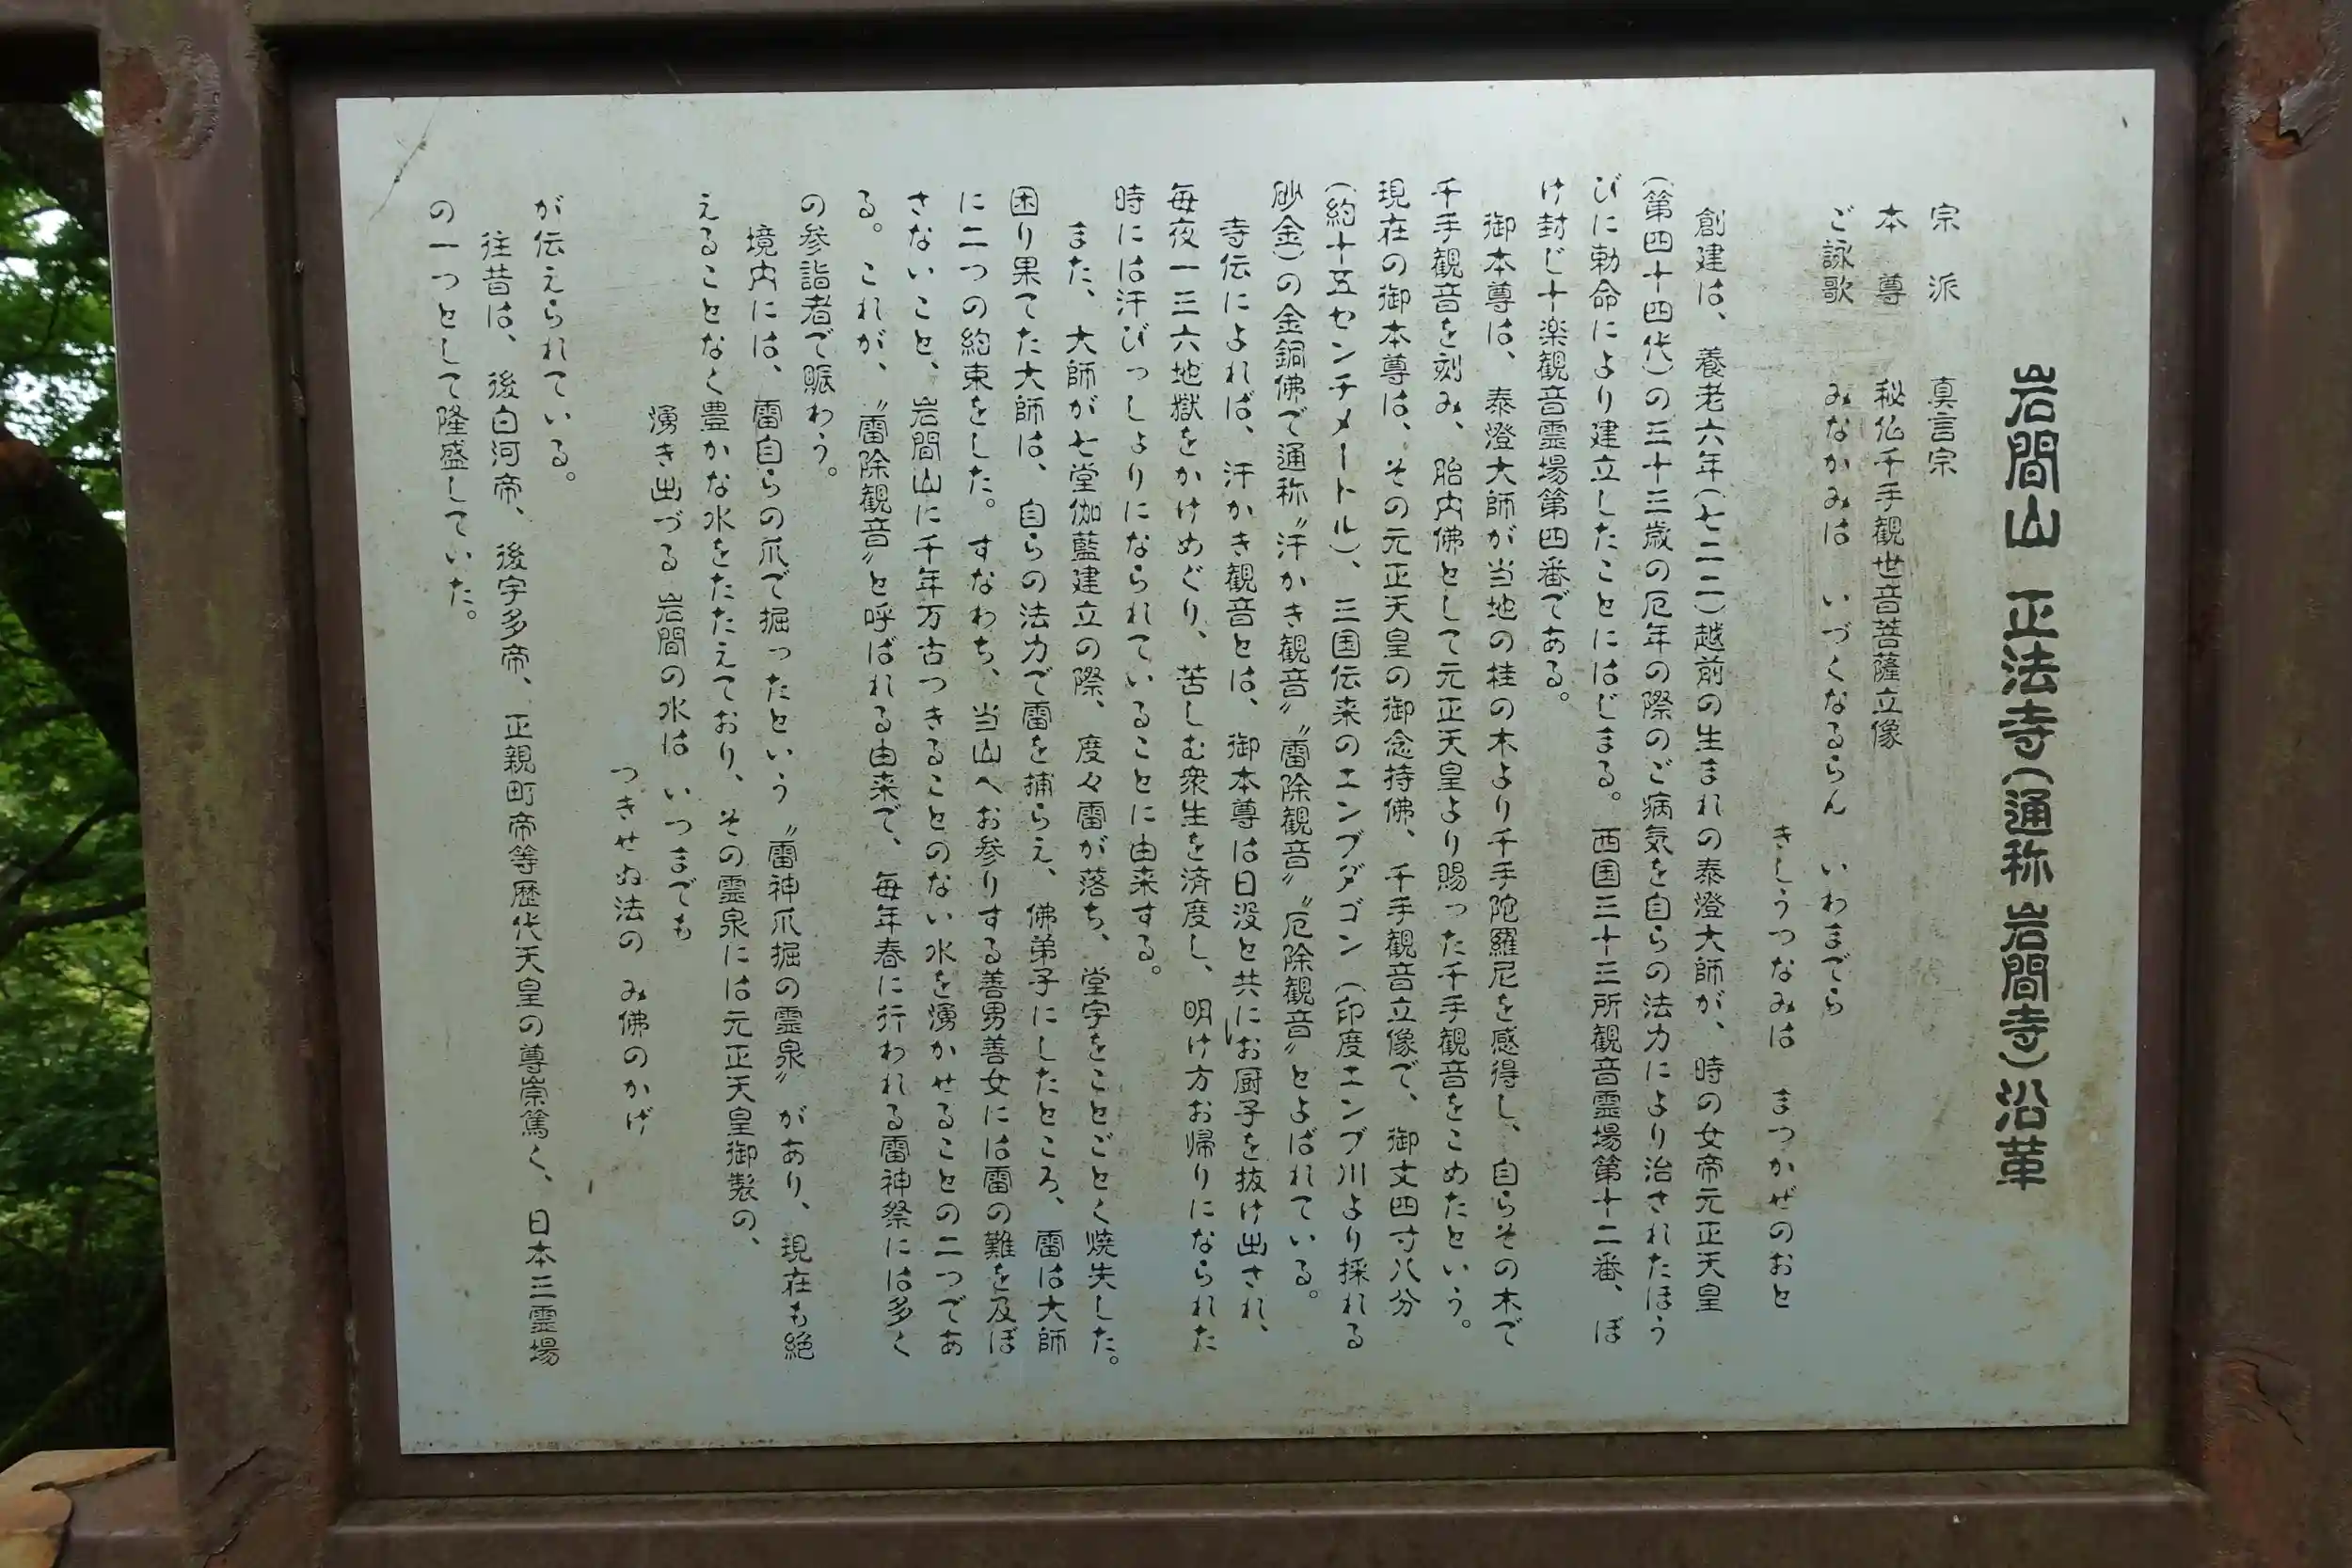 岩間山 正法寺(通称 岩間寺)沿革
宗派 真言宗
本尊 秘仏千手観世音菩薩立像
ご詠歌 みなかみは いづくなるらん いわまでら
きしうつなみは まつかぜのおと
創建は、養老六年(七二二)越前の生まれの泰澄大師が、時の女帝元正天皇
(第四十四代)の三十三歳の厄年の際のご病気を自らの法力により治されたほう
びに勅命により建立したことにはじまる。西国三十三所観音霊場第十二番、ぼ
け封じ十楽観音霊場第四番である。
御本尊は、泰澄大師が当地の桂の木より千手陀羅尼を感得し、自らその木で
千手観音を刻み、胎内佛として元正天皇より賜った千手観音をこめたという。
現在の御本尊は、その元正天皇の御念持佛、千手観音立像で、御丈四寸八分
(約十五センチメートル)、三国伝来のエンブダゴン(印度エンブ川より採れる
砂金)の金銅佛で通称〝汗かき観音〟〝雷除観音〟〝厄除観音〟とよばれている。
寺伝によれば、汗かき観音とは、御本尊は日没と共にお厨子を抜け出され、
毎夜一三六地獄をかけめぐり、苦しむ衆生を済度し、明け方お帰りになられた
時には汗びっしょりになられていることに由来する。
また、大師が七堂伽藍建立の際、度々雷が落ち、堂宇をことごとく焼失した。
困り果てた大師は、自らの法力で雷を捕らえ、佛弟子にしたところ、雷は大師
に二つの約束をした。すなわち、当山へお参りする善男善女には雷の難を及ぼ
さないこと、岩間山に千年万古つきることのない水を湧かせることの二つであ
る。これが、〝雷除観音〟と呼ばれる由来で、毎年春に行われる雷神祭には多く
の参詣者で賑わう。
境内には、雷自らの爪で掘ったという〝雷神爪堀の霊泉〟があり、現在も絶
えることなく豊かな水をたたえており、その霊泉には元正天皇御製の、
湧き出づる 岩間の水は いつまでも
つきせぬ法の み佛のかげ
が伝えられている。
往昔は、後白河帝、後宇多帝、正親町帝等歴代天皇の尊崇篤く、日本三霊場
の一つとして隆盛していた。